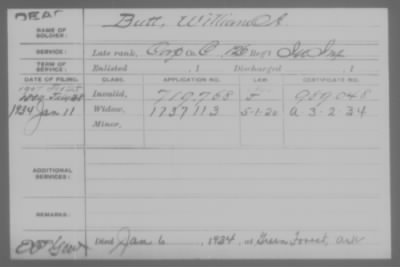 DEAT
NAME OF SOLDIER: Butt, William A.
SERVICE: Late rank, Corp Co. C, 126 Reg't Ill Inf
TERM OF SERVICE: Enlisted , 1 Discharged , 1
DATE OF FILING. CLASS. APPLICATION NO. LAW. CERTIFICATE NO.
Invalid, 719,768 989,048
1934 Jan 11 Widow, 1737113 5-1-20 A 3-2-34
Minor,
ADDITIONAL SERVICES:
REMARKS:
Died Jan 6, 1934, at Green Forest, Ark